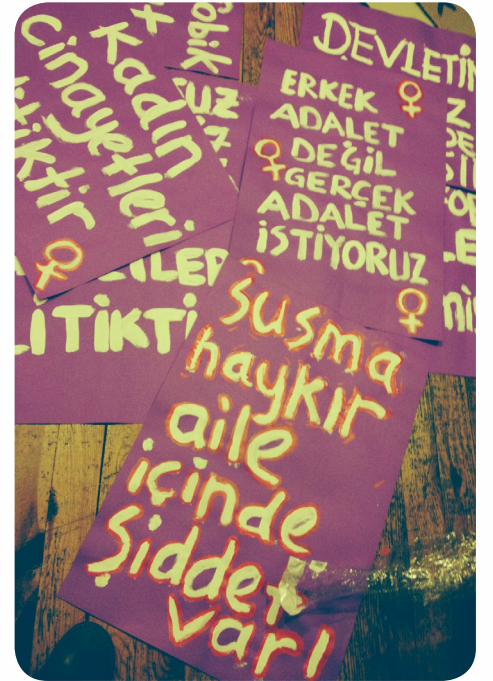 Kadın
Cinayetleri
obik
UZ
DEVLETİN
ERKEK
ADALET
DEĞİL
GERÇEK
ADALET
İSTİYORUZ
susma
haykır
aile
içinde
Şiddet
var!